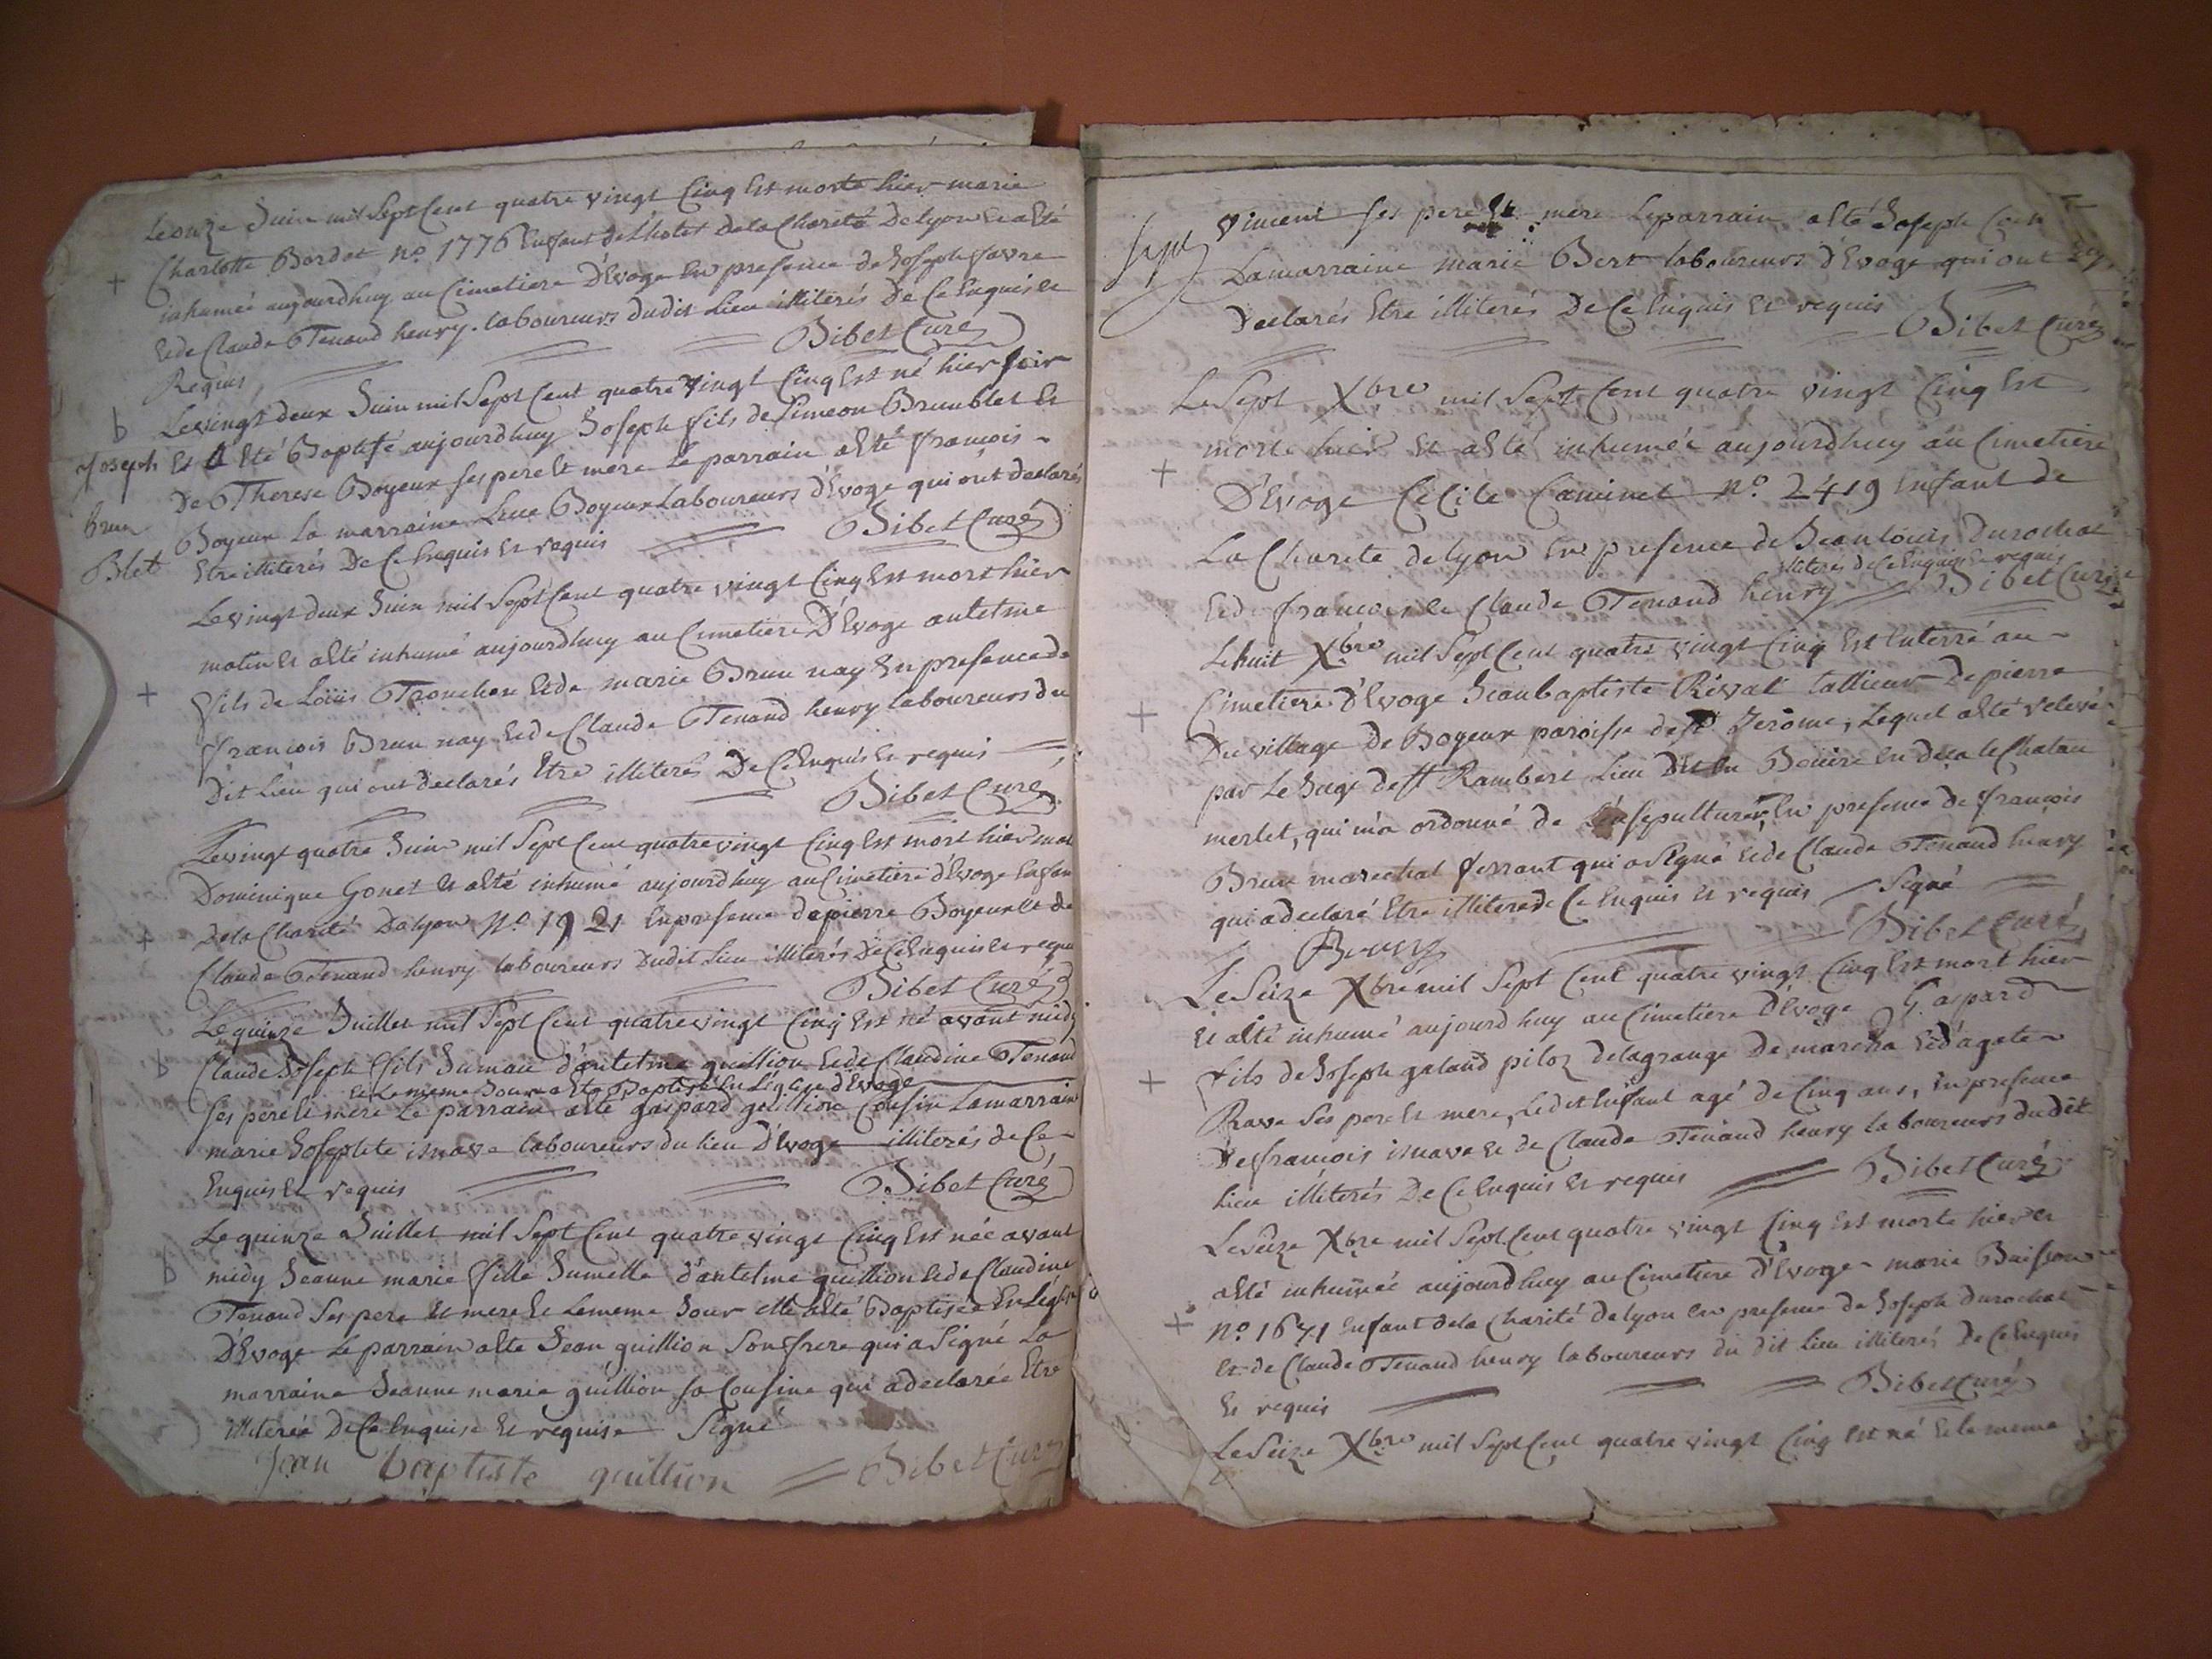 Le onze Juin mil Sept Cent quatre vingt Cinq Est morte hier marie
+ Charlotte Bordet No. 1776 Enfant de L'hotel de la Charité De Lyon Et a Eté
inhumée aujourdhuy au Cimetiere D'Evoge En presence de Joseph favre
Et de Claude Tenand henry laboureurs dudit Lieu illiterés De Ce Enquis et
Requis Bibet Curé
b Le vingt deux Juin mil Sept Cent quatre vingt Cinq Est né hier soir
Joseph Et A Eté Baptisé aujourdhuy Joseph fils de Simeon Brun blet Et
De Therese Boyeux ses pere Et mere Le parrain a Eté françois
brun Boyeux La marraine Boyeux Laboureurs d'Evoge qui ont declarés
Blet Etre illiterés De Ce Enquis Et requis Bibet Curé
Le vingt deux Juin mil Sept Cent quatre vingt Cinq Est mort hier
matin Et a Eté inhumé aujourdhuy au Cimetiere D'Evoge antelme
+ fils de Loüis Et de marie Brun nay En presence de
françois Brun nay Et de Claude Tenand henry laboureurs du
Dit Lieu qui ont declarés Etre illiterés De Ce Enquis Et requis
Bibet Curé
Le vingt quatre Juin mil Sept Cent quatre vingt Cinq Est mort hier
Dominique Gonet Et a Eté inhumé aujourdhuy au Cimetiere d'Evoge Enfan
+ De la Charité De Lyon No. 1921 En presence de pierre Boyeux Et de
Claude Tenand henry laboureurs Dudit Lieu illiterés De Ce Enquis Et requis
Bibet Curé
Le quinze Juillet mil Sept Cent quatre vingt Cinq Est né avant midy
b Claude Joseph fils Jumau d'antelme guillion Et de Claudine Tenand
Et Le meme Jour a Eté Baptisé En L'église d'Evoge
ses pere Et mere Le parrain a Eté gaspard guillion Cousin La marraine
marie Josephte isnave laboureurs du lieu D'Evoge illiterés de Ce
Enquis Et requis Bibet Curé
Le quinze Juillet mil Sept Cent quatre vingt Cinq Est née avant
b midy Jeanne marie fille Jumelle d'antelme guillion Et de Claudine
Tenand Ses pere Et mere Et Le meme Jour Elle a Eté Baptisée En L'église
D'Evoge Le parrain a Eté Jean guillion Son frere qui a Signé La
marraine Jeanne marie guillion sa Cousine qui a declarée Etre
illiterée De Ce Enquise Et requise Signé
Jean baptiste guillion Bibet Curé
Vincent ses pere Et mere Le parrain a Eté Joseph
La marraine marie Bert laboureurs d'Evoge qui ont
Declarés Etre illiterés De Ce Enquis Et requis Bibet Curé
Le Sept Xbre mil Sept Cent quatre vingt Cinq Est
morte hier Et a Eté inhumée aujourdhuy au Cimetiere
+ D'Evoge Cecile Caminet No. 2419 Enfant de
La Charité de Lyon En presence de Jean Loüis Durochat
illiterés de Ce Enquis Et requis
Et de françois Et Claude Tenand henry Bibet Curé
Le huit Xbre mil Sept Cent quatre vingt Cinq Est Enterré au
+ Cimetiere d'Evoge Jean baptiste Réval tallieur De pierre
Du village De Boyeux paroisse de St Jerôme, Lequel a Eté relevé
par Le Juge de St Rambert Lieu Dit En En deca le Chatau
merlet, qui m'a ordonné de L'ensepulturer En presence de françois
Brun marechal ferrant qui a Signé Et de Claude Tenand henry
qui a declaré Etre illiteré de Ce Enquis Et requis Signé
Bibet Curé
Le Seize Xbre mil Sept Cent quatre vingt Cinq Est mort hier
Et a Eté inhumé aujourdhuy au Cimetiere d'Evoge Gaspard
+ fils de Joseph galand piloz de la grange De Et d'agate
Rave Ses pere Et mere, Ledit Enfant agé de Cinq ans, En presence
De françois isnave Et de Claude Tenand henry laboureurs du dit
Lieu illiterés De Ce Enquis Et requis Bibet Curé
Le Seize Xbre mil Sept Cent quatre vingt Cinq Est morte hier Et
a Eté inhumée aujourdhuy au Cimetiere d'Evoge marie Buisson
+ No. 1671 Enfant de la Charité de Lyon En presence de Joseph Durochat
Et de Claude Tenand henry laboureurs du dit Lieu illiterés De Ce Enquis
Et requis Bibet Curé
Le Seize Xbre mil Sept Cent quatre vingt Cinq Est né Et le meme